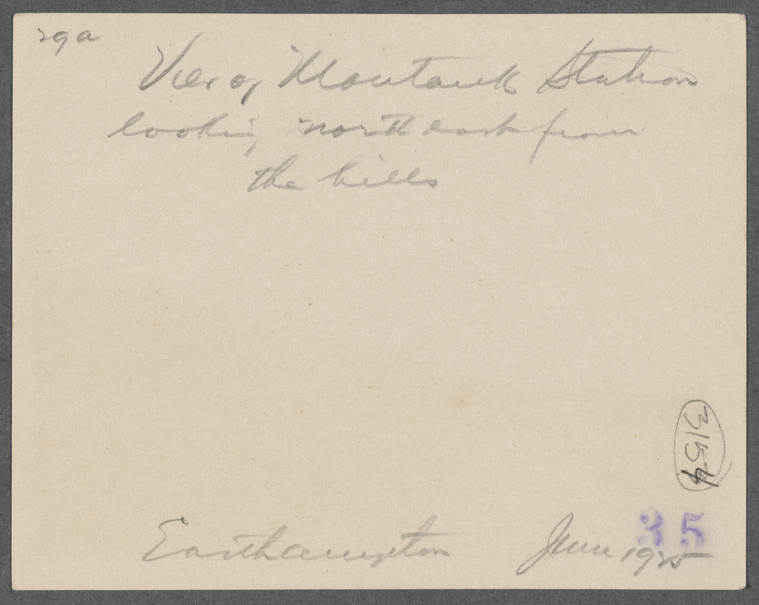 29a
View of Montauk Station
looking north east from
the hills
3154
35
Easthampton June 1925